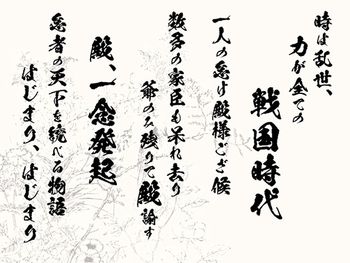 時は乱世、
力が全ての
戦国時代
一人の怠け殿様ござ候
数多の家臣も呆れ去り
爺のみ残りて殿諭す
殿、一念発起
怠者の天下を統べる物語
はじまり、はじまり